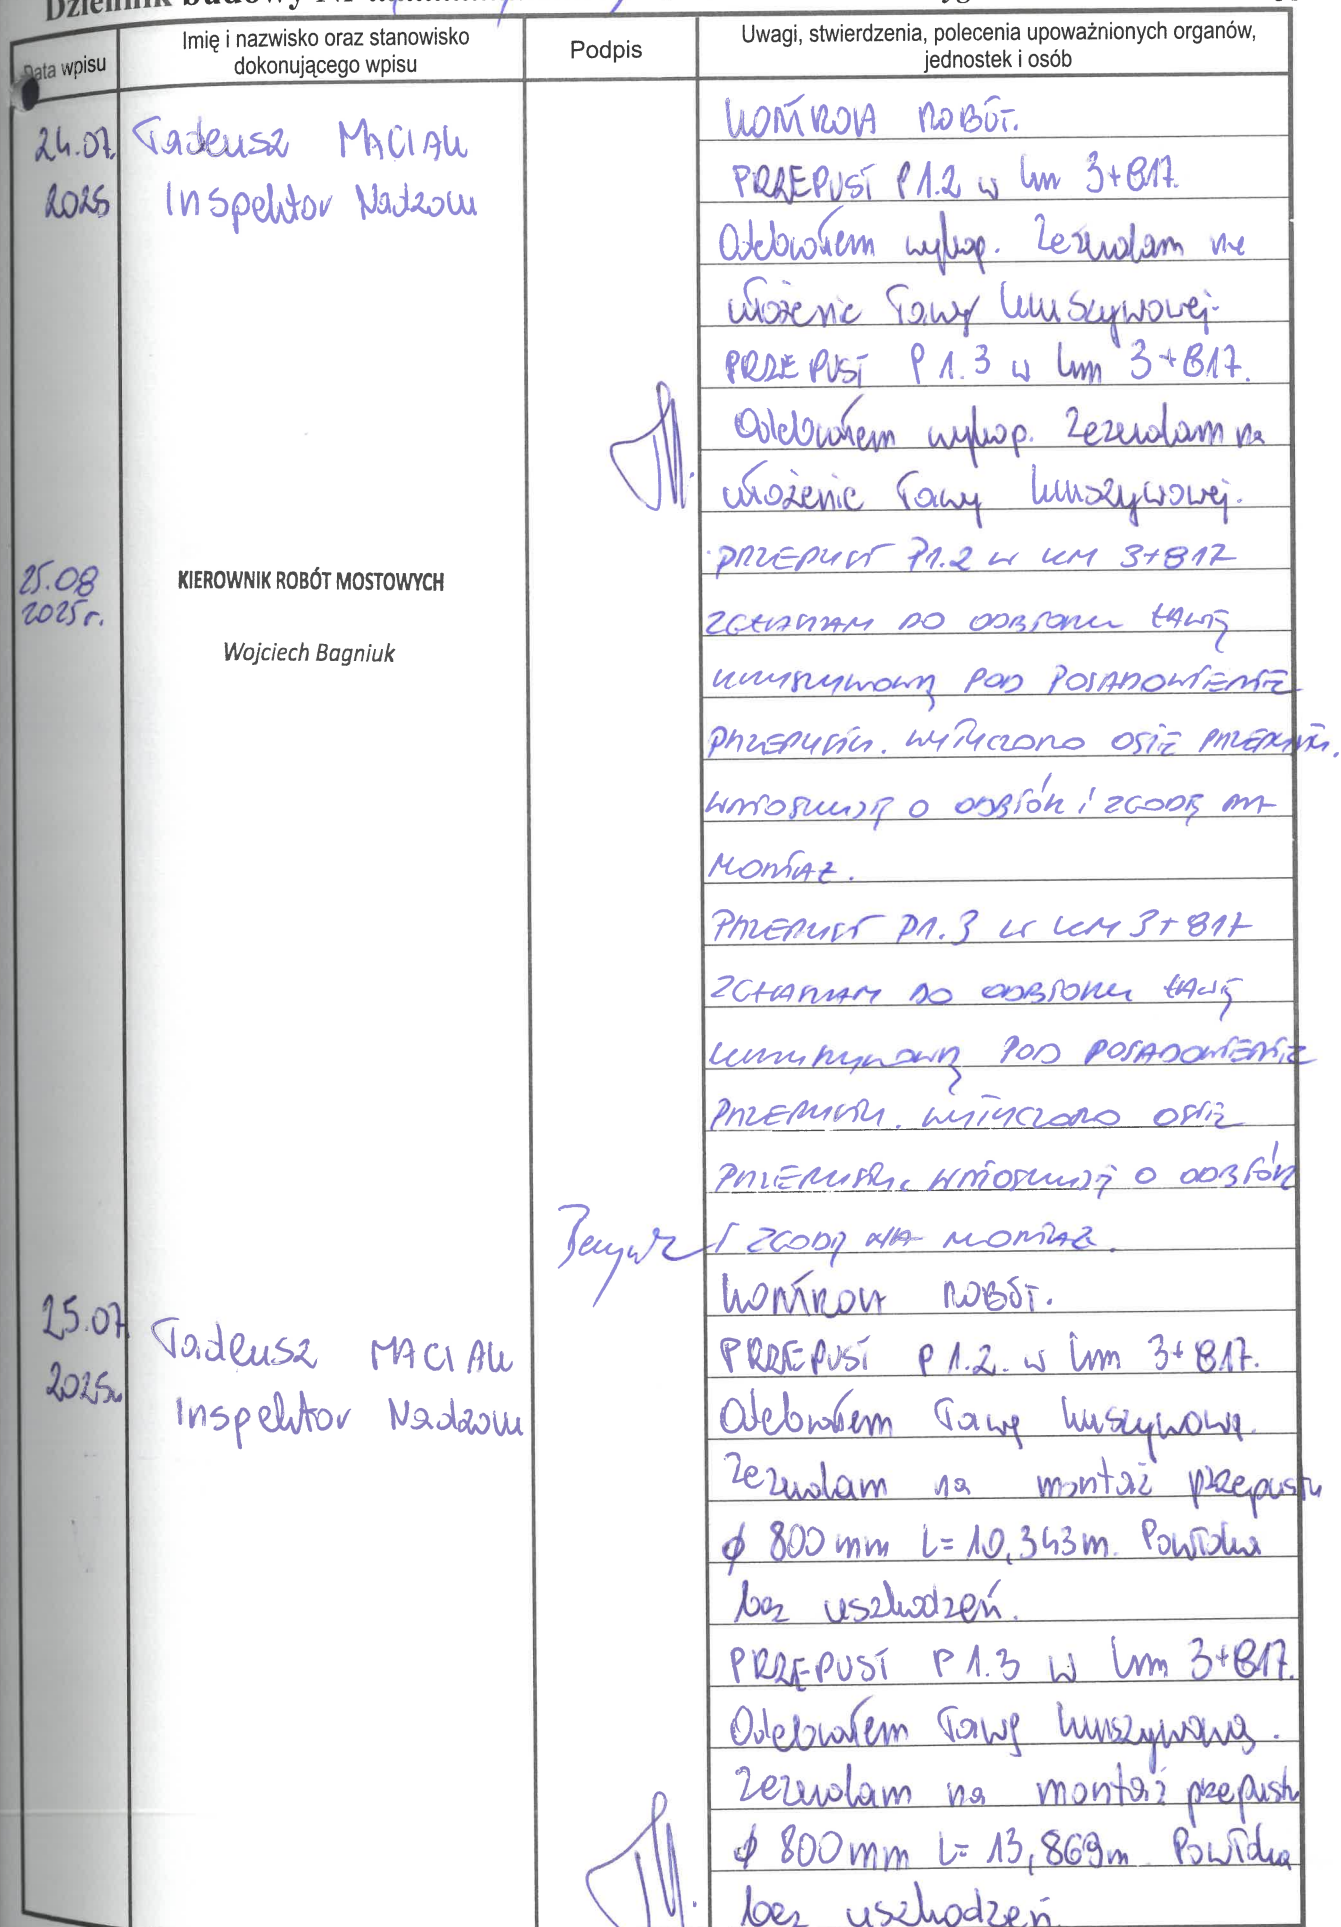 Dziennik budowy Nr
Data wpisu
Imię i nazwisko oraz stanowisko
dokonującego wpisu
Podpis
Uwagi, stwierdzenia, polecenia upoważnionych organów,
jednostek i osób
24.07.
2025
Tadeusz MACIAK
Inspektor Nadzoru
KONTROLA ROBÓT.
PRZEPUST P1.2 w km 3+817.
Odebrałem wykop. Zezwalam na
ułożenie ławy kruszywowej.
PRZEPUST P 1.3 w km 3+817.
Odebrałem wykop. Zezwalam na
ułożenie ławy kruszywowej.
25.08
2025r.
KIEROWNIK ROBÓT MOSTOWYCH
Wojciech Bagniuk
PRZEPUST P1.2 W KM 3+817
ZGŁASZAM DO ODBIORU ŁAWĘ
KRUSZYWOWĄ POD POSADOWIENIE
PRZEPUSTU. WYTYCZONO OSIE PRZEPUSTU.
WNIOSKUJĘ O ODBIÓR I ZGODĘ NA
MONTAŻ.
PRZEPUST P1.3 W KM 3+817
ZGŁASZAM DO ODBIORU ŁAWĘ
KRUSZYWOWĄ POD POSADOWIENIE
PRZEPUSTU. WYTYCZONO OSIE
PRZEPUSTU. WNIOSKUJĘ O ODBIÓR
I ZGODĘ NA MONTAŻ.
25.07
2025r.
Tadeusz MACIAK
Inspektor Nadzoru
KONTROLA ROBÓT.
PRZEPUST P 1.2. w km 3+817.
Odebrałem ławę kruszywową.
Zezwalam na montaż przepustu
ϕ 800 mm L= 10,343m. Powłoka
bez uszkodzeń.
PRZEPUST P 1.3 w km 3+817.
Odebrałem ławę kruszywową.
Zezwalam na montaż przepustu
ϕ 800 mm L= 13,869m. Powłoka
bez uszkodzeń.